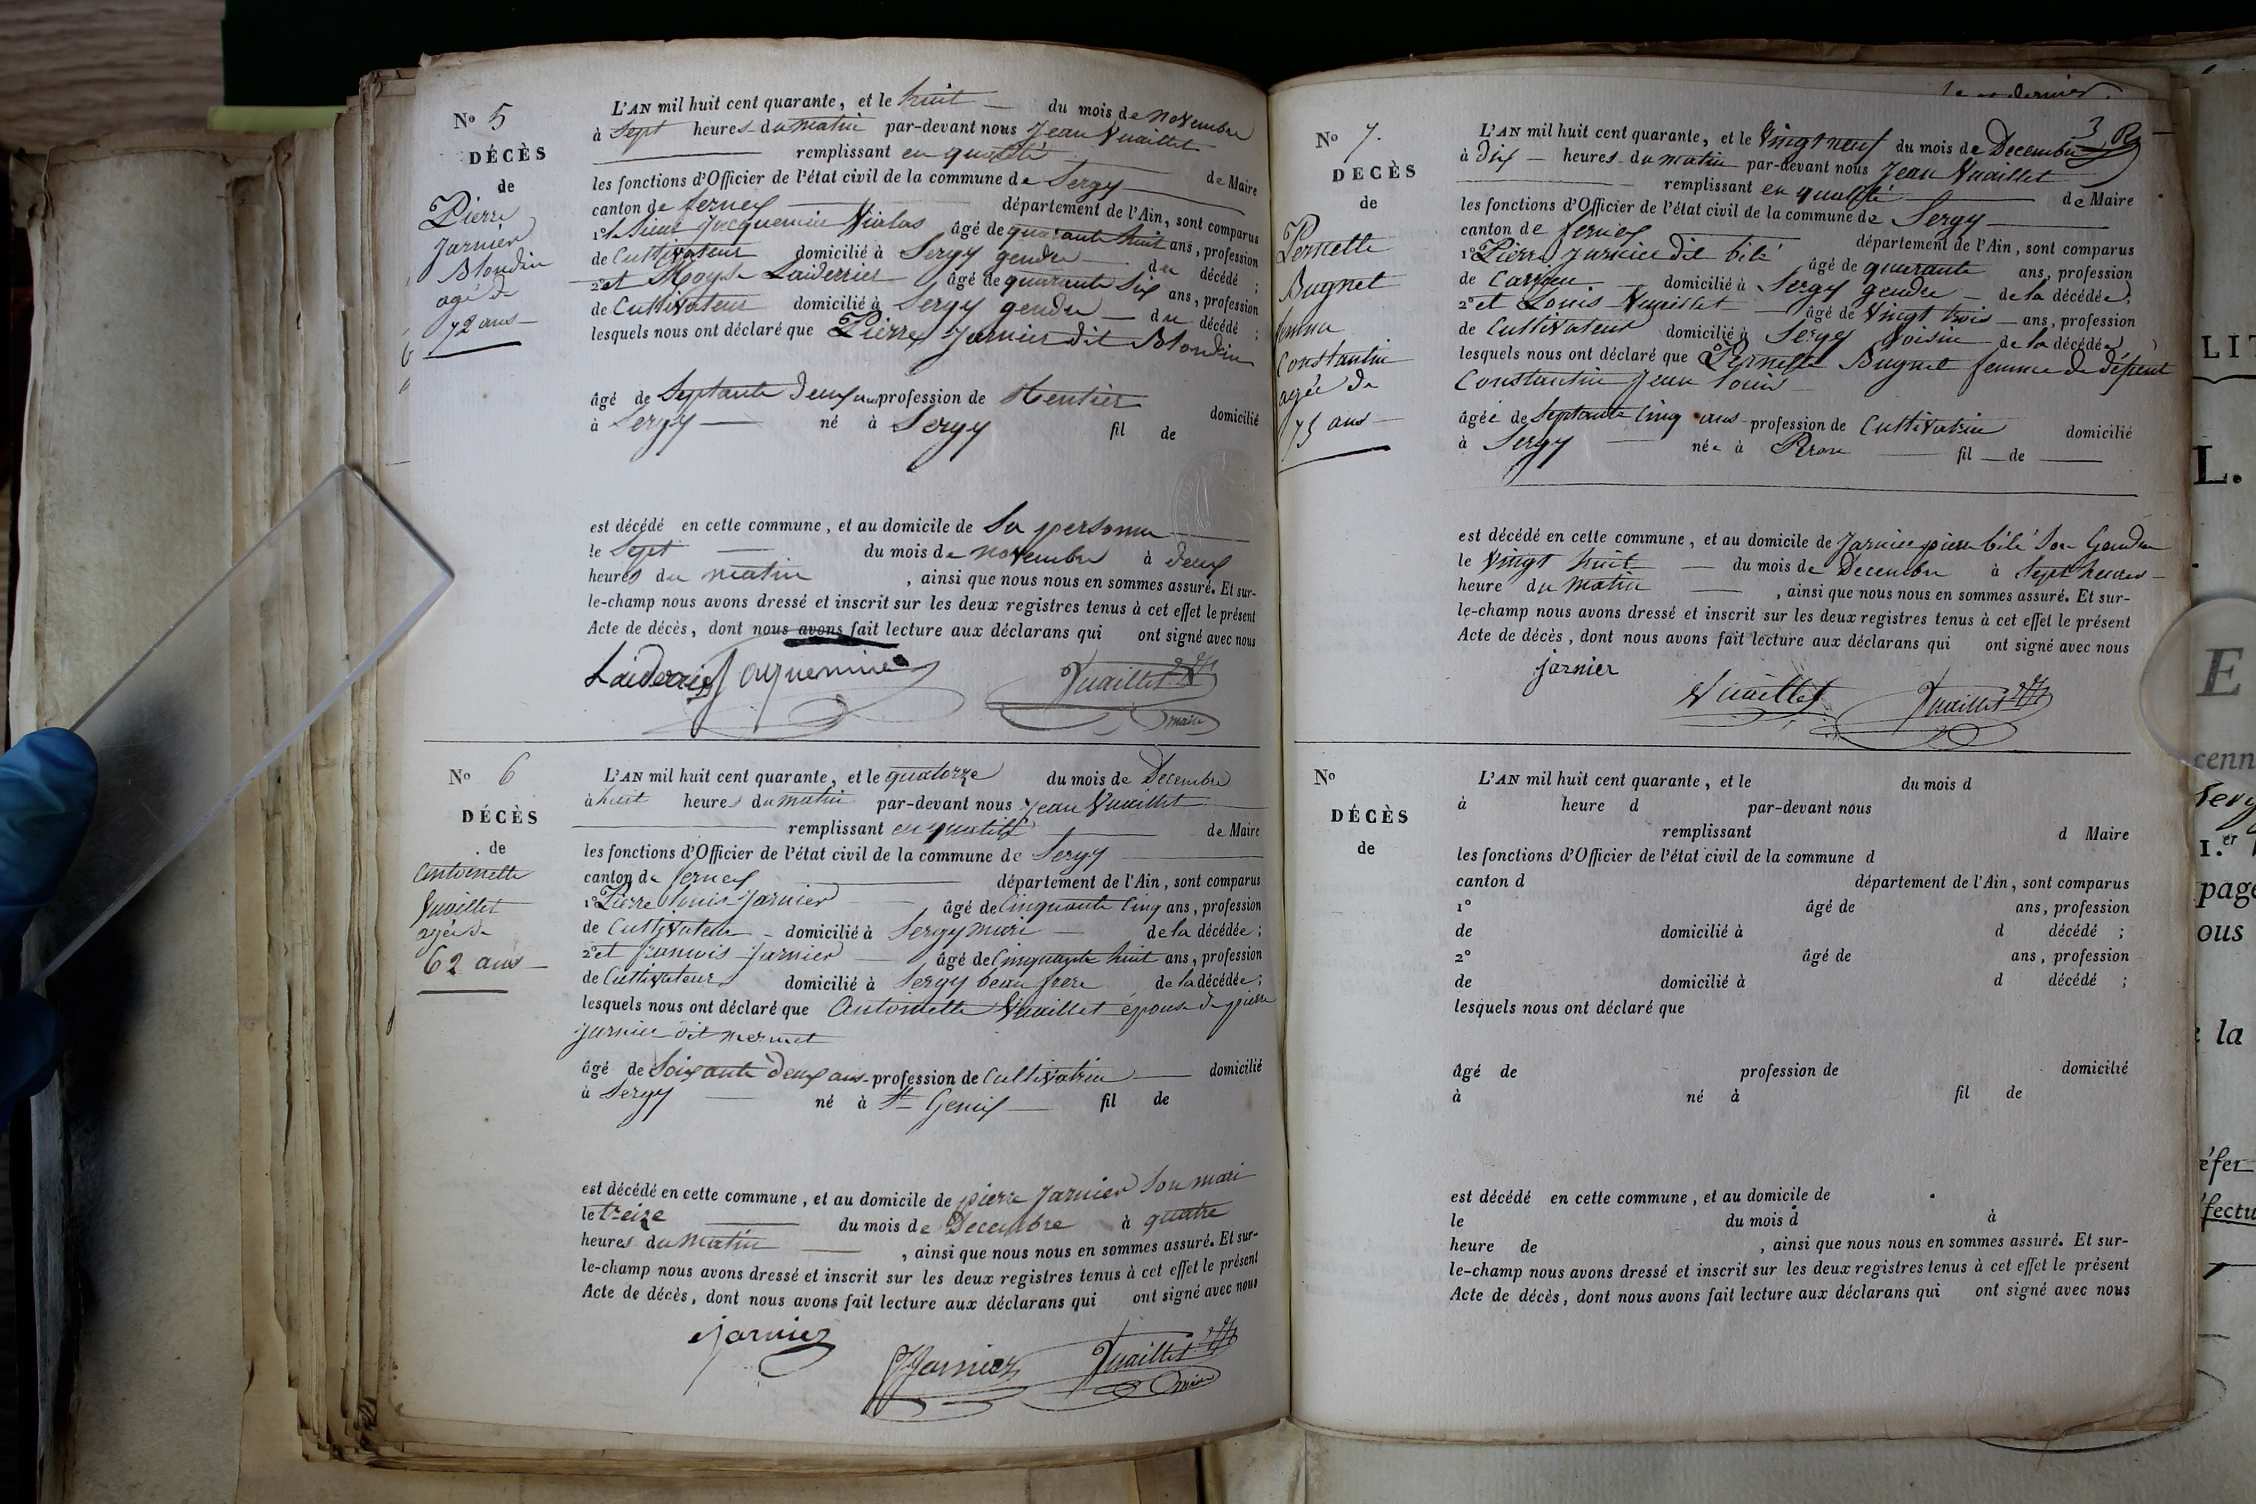 No 5
DÉCÈS
de
Pierre
Jarnier
Blondin
agé de
72 ans
L'AN mil huit cent quarante, et le huit du mois de Novembre
à Sept heures du matin par-devant nous Jean Vuaillet
remplissant en qualité de Maire
les fonctions d'Officier de l'état civil de la commune de Sergy
canton de ferney département de l'Ain, sont comparus
1° Jacquemier Nicolas âgé de quarante huit ans, profession
de Cultivateur domicilié à Sergy gendre du décédé ;
2° et Moyse Laiderrier âgé de quarante Six ans, profession
de Cultivateur domicilié à Sergy gendre du décédé ;
lesquels nous ont déclaré que Pierre Jarnier dit Blondin
âgé de Septante deux ans profession de Rentier domicilié
à Sergy né à Sergy fil de
est décédé en cette commune, et au domicile de Sa personne
le Sept du mois de novembre à deux
heures du matin , ainsi que nous nous en sommes assuré. Et sur-
le-champ nous avons dressé et inscrit sur les deux registres tenus à cet effet le présent
Acte de décès, dont nous avons fait lecture aux déclarans qui ont signé avec nous
Laiderrier Jaquemier Vuaillet
maire
No 6
DÉCÈS
de
Antoinette
Vuaillet
agée de
62 ans
L'AN mil huit cent quarante, et le quatorze du mois de Decembre
à huit heures du matin par-devant nous Jean Vuaillet
remplissant en qualité de Maire
les fonctions d'Officier de l'état civil de la commune de Sergy
canton de ferney département de l'Ain, sont comparus
1° Pierre Louis Jarnier âgé de Cinquante Cinq ans, profession
de Cultivateur domicilié à Sergy mari de la décédée ;
2° et francois Jarnier âgé de Cinquante huit ans, profession
de Cultivateur domicilié à Sergy beau frere de la décédée ;
lesquels nous ont déclaré que Antoinette Vuaillet épouse de pierre
Jarnier dit mermet
âgé de Soixante deux ans profession de Cultivatrice domicilié
à Sergy né à St Genix fil de
est décédé en cette commune, et au domicile de pierre Jarnier Son mari
le treize du mois de Decembre à quatre
heures du matin , ainsi que nous nous en sommes assuré. Et sur-
le-champ nous avons dressé et inscrit sur les deux registres tenus à cet effet le présent
Acte de décès, dont nous avons fait lecture aux déclarans qui ont signé avec nous
jarnier
Jarnier Vuaillet
maire
et dernier.
3
No 7.
DÉCÈS
de
Pernette
Bugnet
femme
Constantin
agée de
75 ans
L'AN mil huit cent quarante, et le Vingt neuf du mois de Decembre
à dix heures du matin par-devant nous Jean Vuaillet
remplissant en qualité de Maire
les fonctions d'Officier de l'état civil de la commune de Sergy
canton de ferney département de l'Ain, sont comparus
1° Pierre Jarnier dit bélé âgé de quarante ans, profession
de domicilié à Sergy gendre de la décédée ;
2° et Louis Vuaillet âgé de Vingt trois ans, profession
de Cultivateur domicilié à Sergy Voisin de la décédée ;
lesquels nous ont déclaré que Pernette Bugnet femme de défunt
Constantin Jean Louis
âgée de Septante Cinq ans profession de Cultivatrice domicilié
à Sergy née à Peron fil de
est décédé en cette commune, et au domicile de Jarnier pierre bélé Son Gendre
le Vingt huit du mois de Decembre à Sept heures
heure du Matin , ainsi que nous nous en sommes assuré. Et sur-
le-champ nous avons dressé et inscrit sur les deux registres tenus à cet effet le présent
Acte de décès, dont nous avons fait lecture aux déclarans qui ont signé avec nous
jarnier
Vuaillet Vuaillet
No
DÉCÈS
de
L'AN mil huit cent quarante, et le du mois d
à heure d par-devant nous
remplissant d Maire
les fonctions d'Officier de l'état civil de la commune d
canton d département de l'Ain, sont comparus
1° âgé de ans, profession
de domicilié à d décédé ;
2° âgé de ans, profession
de domicilié à d décédé ;
lesquels nous ont déclaré que
âgé de profession de domicilié
à né à fil de
est décédé en cette commune, et au domicile de
le du mois d à
heure de , ainsi que nous nous en sommes assuré. Et sur-
le-champ nous avons dressé et inscrit sur les deux registres tenus à cet effet le présent
Acte de décès, dont nous avons fait lecture aux déclarans qui ont signé avec nous
LIT
L.
E
cenn
Serg
1.er
page
ous
la
éfer
fectu